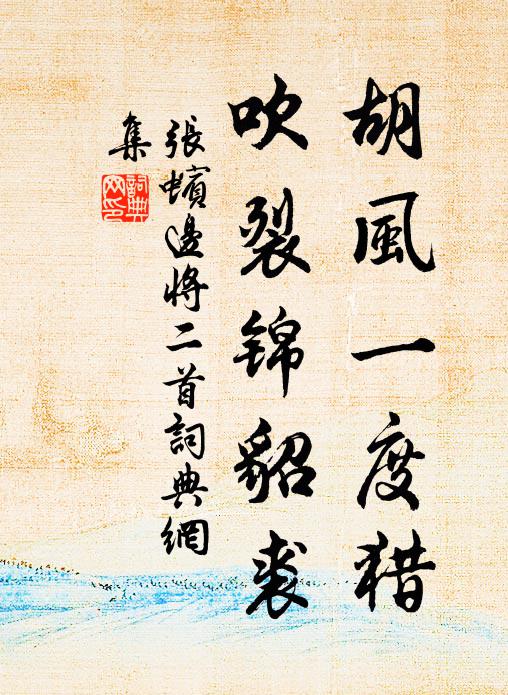 胡風一度猎
吹裂锦貂裘
張蠙邊將二首詞典網
集
詞典
网印